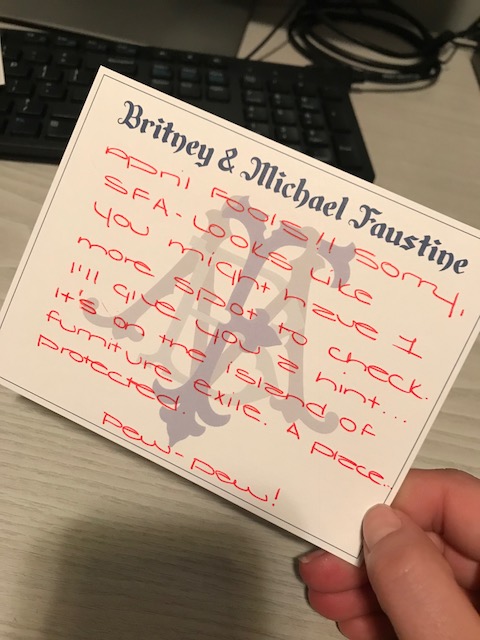 Britney & Michael Faustine
April Fools!! Sorry,
SFA - Looks like
you might have 1
more spot to check.
I'll give you a hint...
It's on the island of
furniture exile. A place...
protected.
pew-pew!